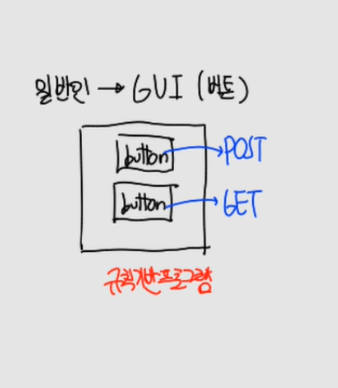 일반인 → GUI (버튼)
button → POST
button → GET
규칙기반프로그램